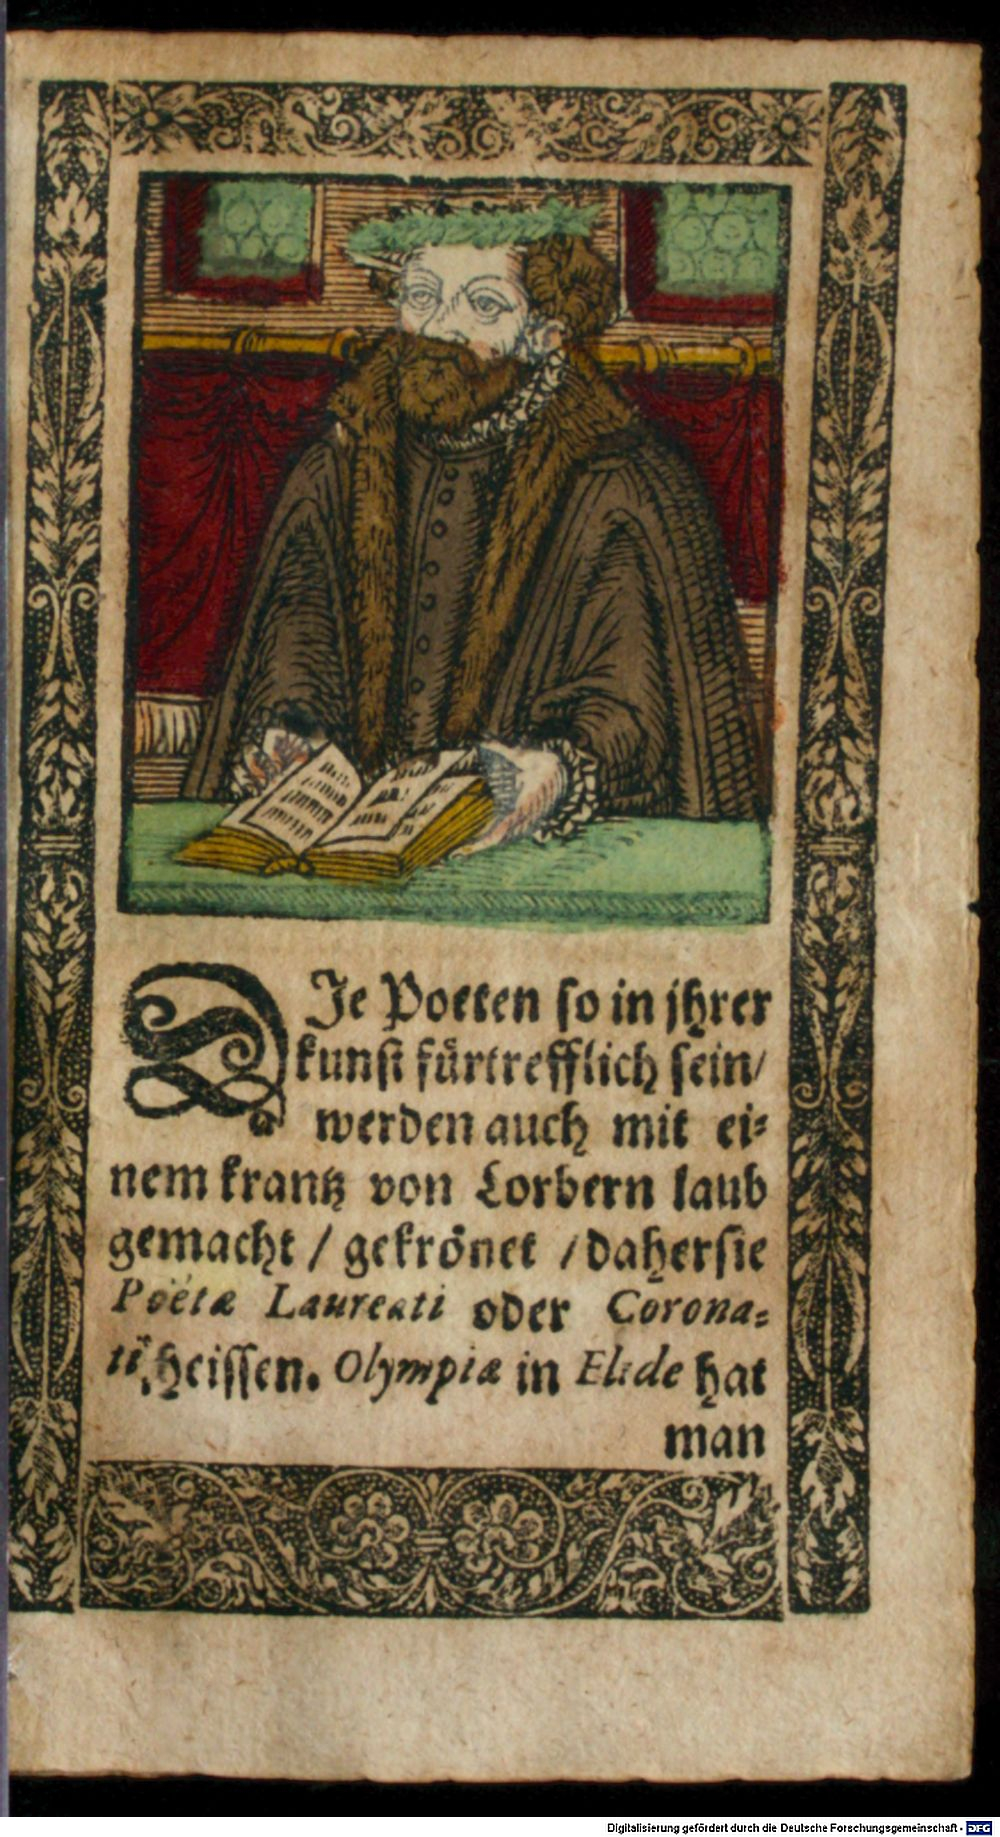 DJe Poeten so in jhrer
kunst fürtrefflich sein/
werden auch mit ei-
nem krantz von Lorbern laub
gemacht / gekrönet / daher sie
Poëtæ Laureati oder Corona-
ti heissen. Olympiæ in Elide hat
man
Digitalisierung gefördert durch die Deutsche Forschungsgemeinschaft - DFG